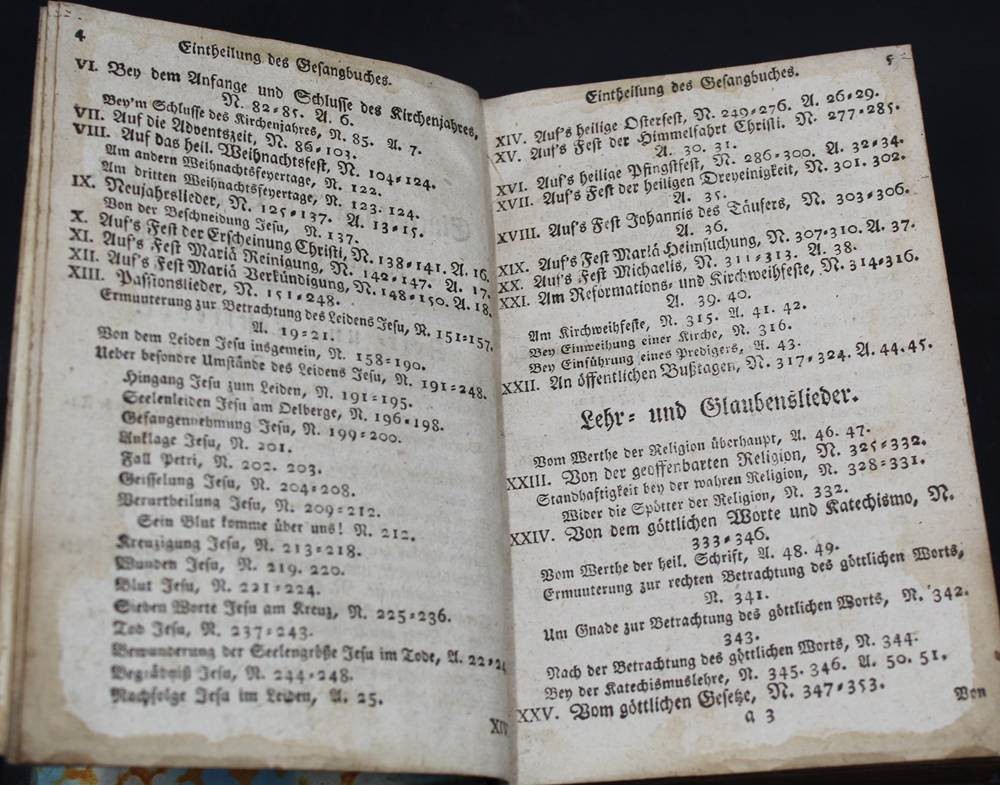 4
Eintheilung des Gesangbuches.
VI. Bey dem Anfange und Schlusse des Kirchenjahres,
N. 82=85. A. 6.
Bey'm Schlusse des Kirchenjahres, N. 85. A. 7.
VII. Auf die Adventszeit, N. 86=103.
VIII. Auf das heil. Weihnachtsfest, N. 104=124.
Am andern Weihnachtsfeyertage, N. 122.
Am dritten Weihnachtsfeyertage, N. 123. 124.
IX. Neujahrslieder, N. 125=137. A. 13=15.
Von der Beschneidung Jesu, N. 137.
X. Auf's Fest der Erscheinung Christi, N. 138=141. A. 16.
XI. Auf's Fest Mariä Reinigung, N. 142=147. A. 17.
XII. Auf's Fest Mariä Verkündigung, N. 148=150. A. 18.
XIII. Passionslieder, N. 151=248.
Ermunterung zur Betrachtung des Leidens Jesu, N. 151=157.
A. 19=21.
Von dem Leiden Jesu insgemein, N. 158=190.
Ueber besondre Umstände des Leidens Jesu, N. 191=248.
Hingang Jesu zum Leiden, N. 191=195.
Seelenleiden Jesu am Oelberge, N. 196=198.
Gefangennehmung Jesu, N. 199=200.
Anklage Jesu, N. 201.
Fall Petri, N. 202. 203.
Geisselung Jesu, N. 204=208.
Verurtheilung Jesu, N. 209=212.
Sein Blut komme über uns! N. 212.
Kreuzigung Jesu, N. 213=218.
Wunden Jesu, N. 219. 220.
Blut Jesu, N. 221=224.
Sieben Worte Jesu am Kreuz, N. 225=236.
Tod Jesu, N. 237=243.
Bewunderung der Seelengröße Jesu im Tode, A. 22=24
Begräbniß Jesu, N. 244=248.
Nachfolge Jesu im Leiden, A. 25.
XIV
5
Eintheilung des Gesangbuches.
XIV. Auf's heilige Osterfest, N. 249=276. A. 26=29.
XV. Auf's Fest der Himmelfahrt Christi. N. 277=285.
A. 30. 31.
XVI. Auf's heilige Pfingstfest, N. 286=300. A. 32=34.
XVII. Auf's Fest der heiligen Dreyeinigkeit, N. 301. 302.
A. 35.
XVIII. Auf's Fest Johannis des Täufers, N. 303=306.
A. 36.
XIX. Auf's Fest Mariä Heimsuchung, N. 307=310. A. 37.
XX. Auf's Fest Michaelis, N. 311=313. A. 38.
XXI. Am Reformations= und Kirchweihfeste, N. 314=316.
A. 39. 40.
Am Kirchweihfeste, N. 315. A. 41. 42.
Bey Einweihung einer Kirche, N. 316.
Bey Einführung eines Predigers, A. 43.
XXII. An öffentlichen Bußtagen, N. 317=324. A. 44. 45.
Lehr= und Glaubenslieder.
Vom Werthe der Religion überhaupt, A. 46. 47.
XXIII. Von der geoffenbarten Religion, N. 325=332.
Standhaftigkeit bey der wahren Religion, N. 328=331.
Wider die Spötter der Religion, N. 332.
XXIV. Von dem göttlichen Worte und Katechismo, N.
333=346.
Vom Werthe der heil. Schrift, A. 48. 49.
Ermunterung zur rechten Betrachtung des göttlichen Worts,
N. 341.
Um Gnade zur Betrachtung des göttlichen Worts, N. 342.
343.
Nach der Betrachtung des göttlichen Worts, N. 344.
Bey der Katechismuslehre, N. 345. 346. A. 50. 51.
XXV. Vom göttlichen Gesetze, N. 347=353.
a 3
Von